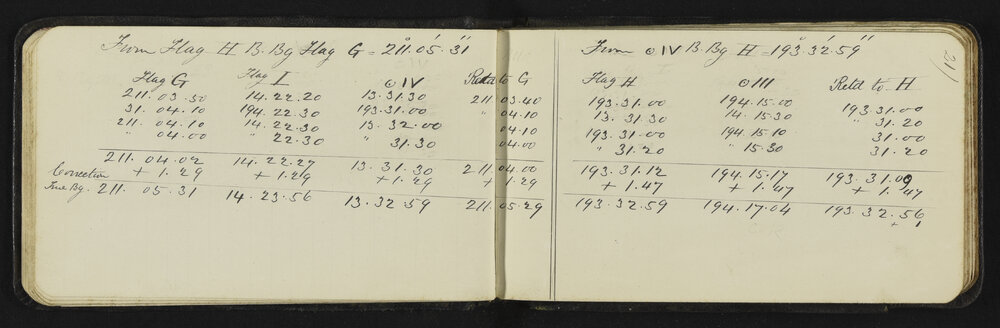 From Flag H B. Bg Flag G = 211°.05'.31"
Flag G Flag I ⊙ IV Retd to G
211. 03. 50 14. 22. 20 13. 31. 30 211. 03. 40
31. 04. 10 194. 22. 30 193. 31. 00 " 04. 10
211. 04. 10 14. 22. 30 13. 32. 00 04. 10
" 04. 00 " 22. 30 " 31. 30 04. 00
211. 04. 02 14. 22. 27 13. 31. 30 211. 04. 00
Correction + 1. 29 + 1. 29 + 1. 29 + 1. 29
True Bg. 211. 05. 31 14. 23. 56 13. 32 59 211. 05. 29
21
From ⊙ IV B. Bg H = 193°. 32'. 59"
Flag H ⊙ III Retd to H
193. 31. 00 194. 15. 00 193. 31. 00
13. 31. 30 14. 15. 30 " 31. 20
193. 31. 00 194. 15. 10 31. 00
" 31. 20 " 15. 30 31. 20
193. 31. 12 194. 15. 17 193. 31. 09
+ 1. 47 + 1. 47 + 1. 47
193. 32. 59 194. 17. 04 193. 32. 56
+ 1